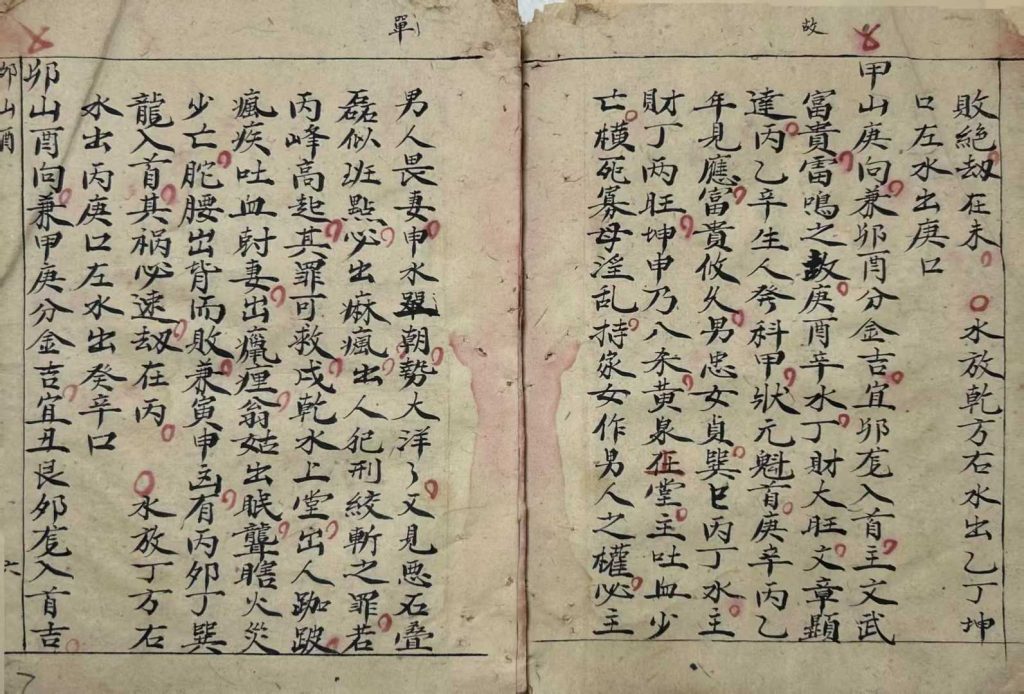 故
敗絕劫在未 水放乾方右水出乙丁坤
口左水出庚口
甲山庚向兼卯酉分金吉宜卯龙入首主文武
富貴雷鳴之故庚酉辛水丁財大旺文章顯
達丙乙辛生人發科甲狀元魁首庚辛丙乙
年見應富貴攸久男忠女貞巽巳丙丁水主
財丁两旺坤申乃八来黄泉在堂主吐血少
亡横死寡母淫乱持家女作男人之權必主
單
男人畏妻申水單朝势大洋々又見悪石叠
磊似班點必出麻瘋出人犯刑絞斬之罪若
丙峰高起其罪可救戌乾水上堂出人跏跛
瘋疾吐血尅妻出癫痙翁姑出眠聾瞎火災
少亡胣腰出背而敗兼寅申凶有丙卯丁巽
龍入首其祸必速劫在丙 水放丁方右
水出丙庚口左水出癸辛口
卯山酉向兼甲庚分金吉宜丑艮卯龙入首吉
卯山酉
六